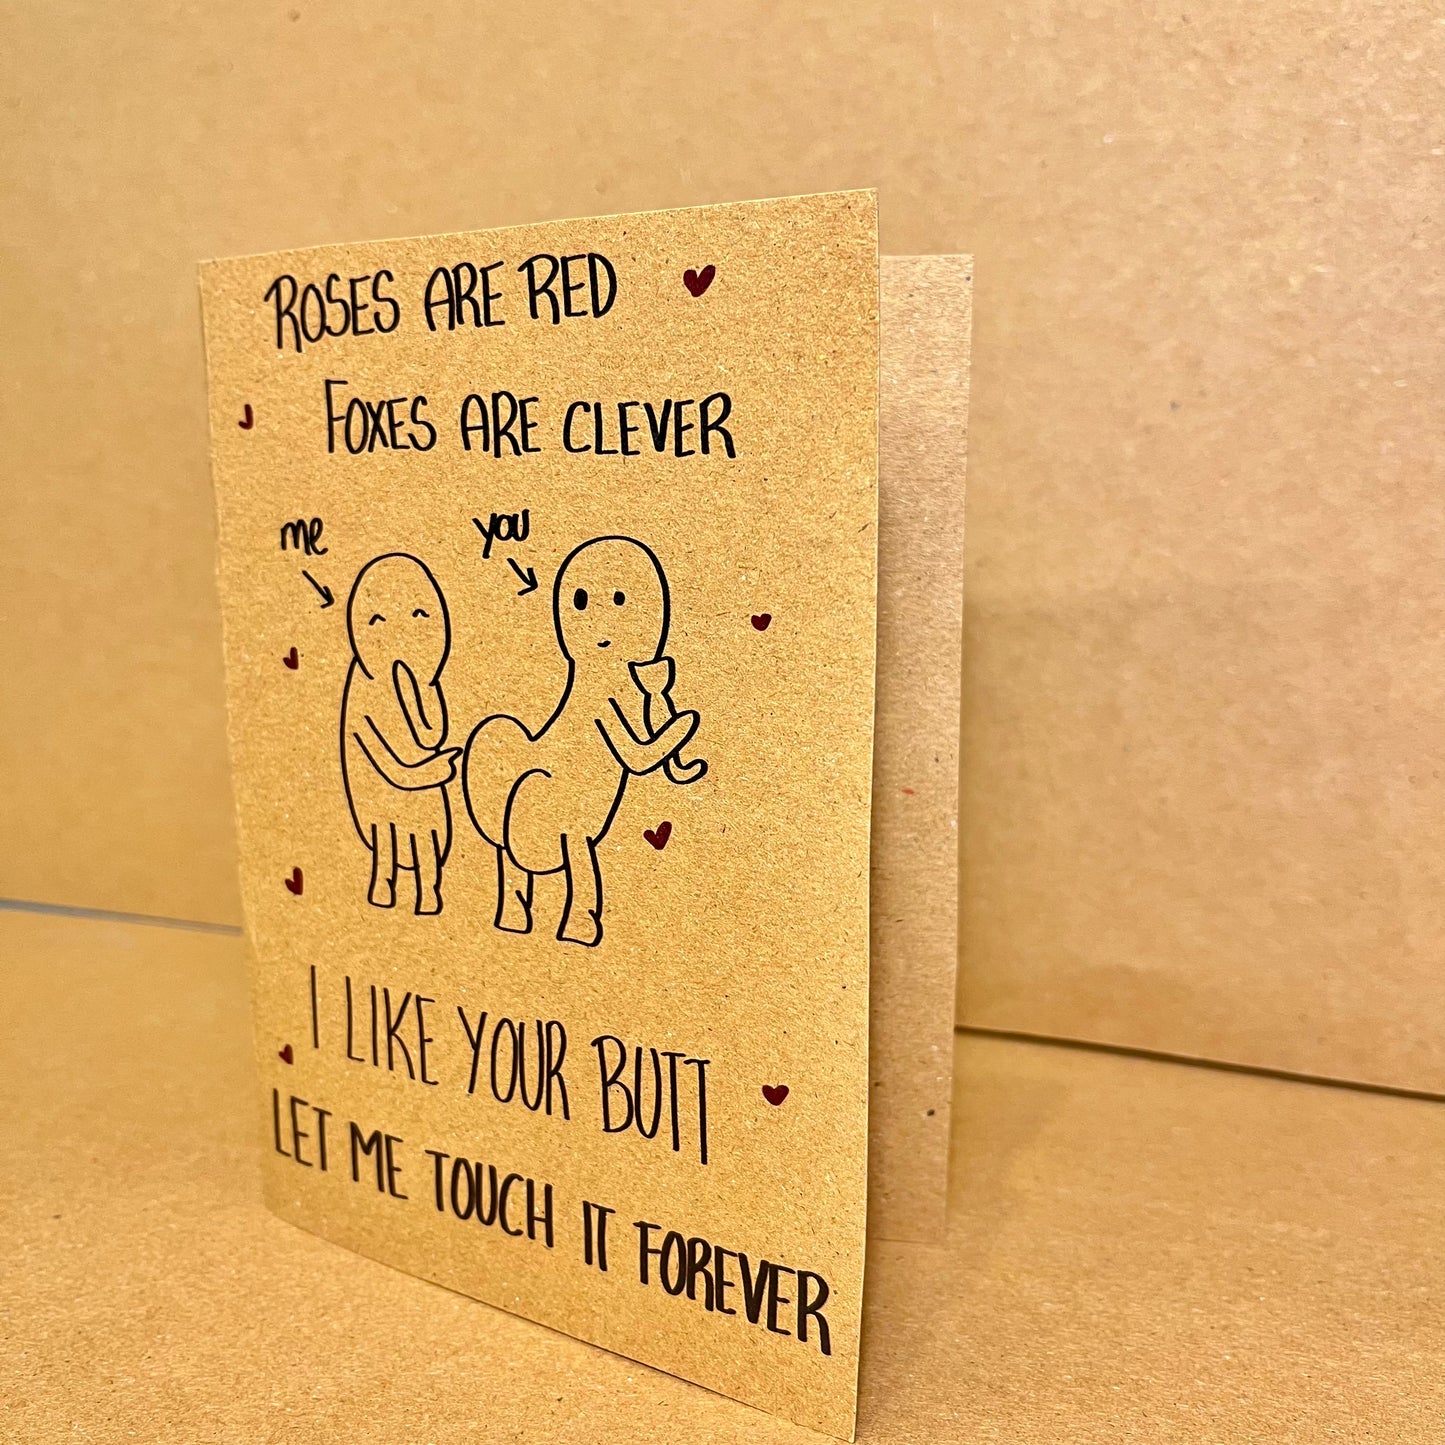 ROSES ARE RED
FOXES ARE CLEVER
me
you
I LIKE YOUR BUTT
LET ME TOUCH IT FOREVER